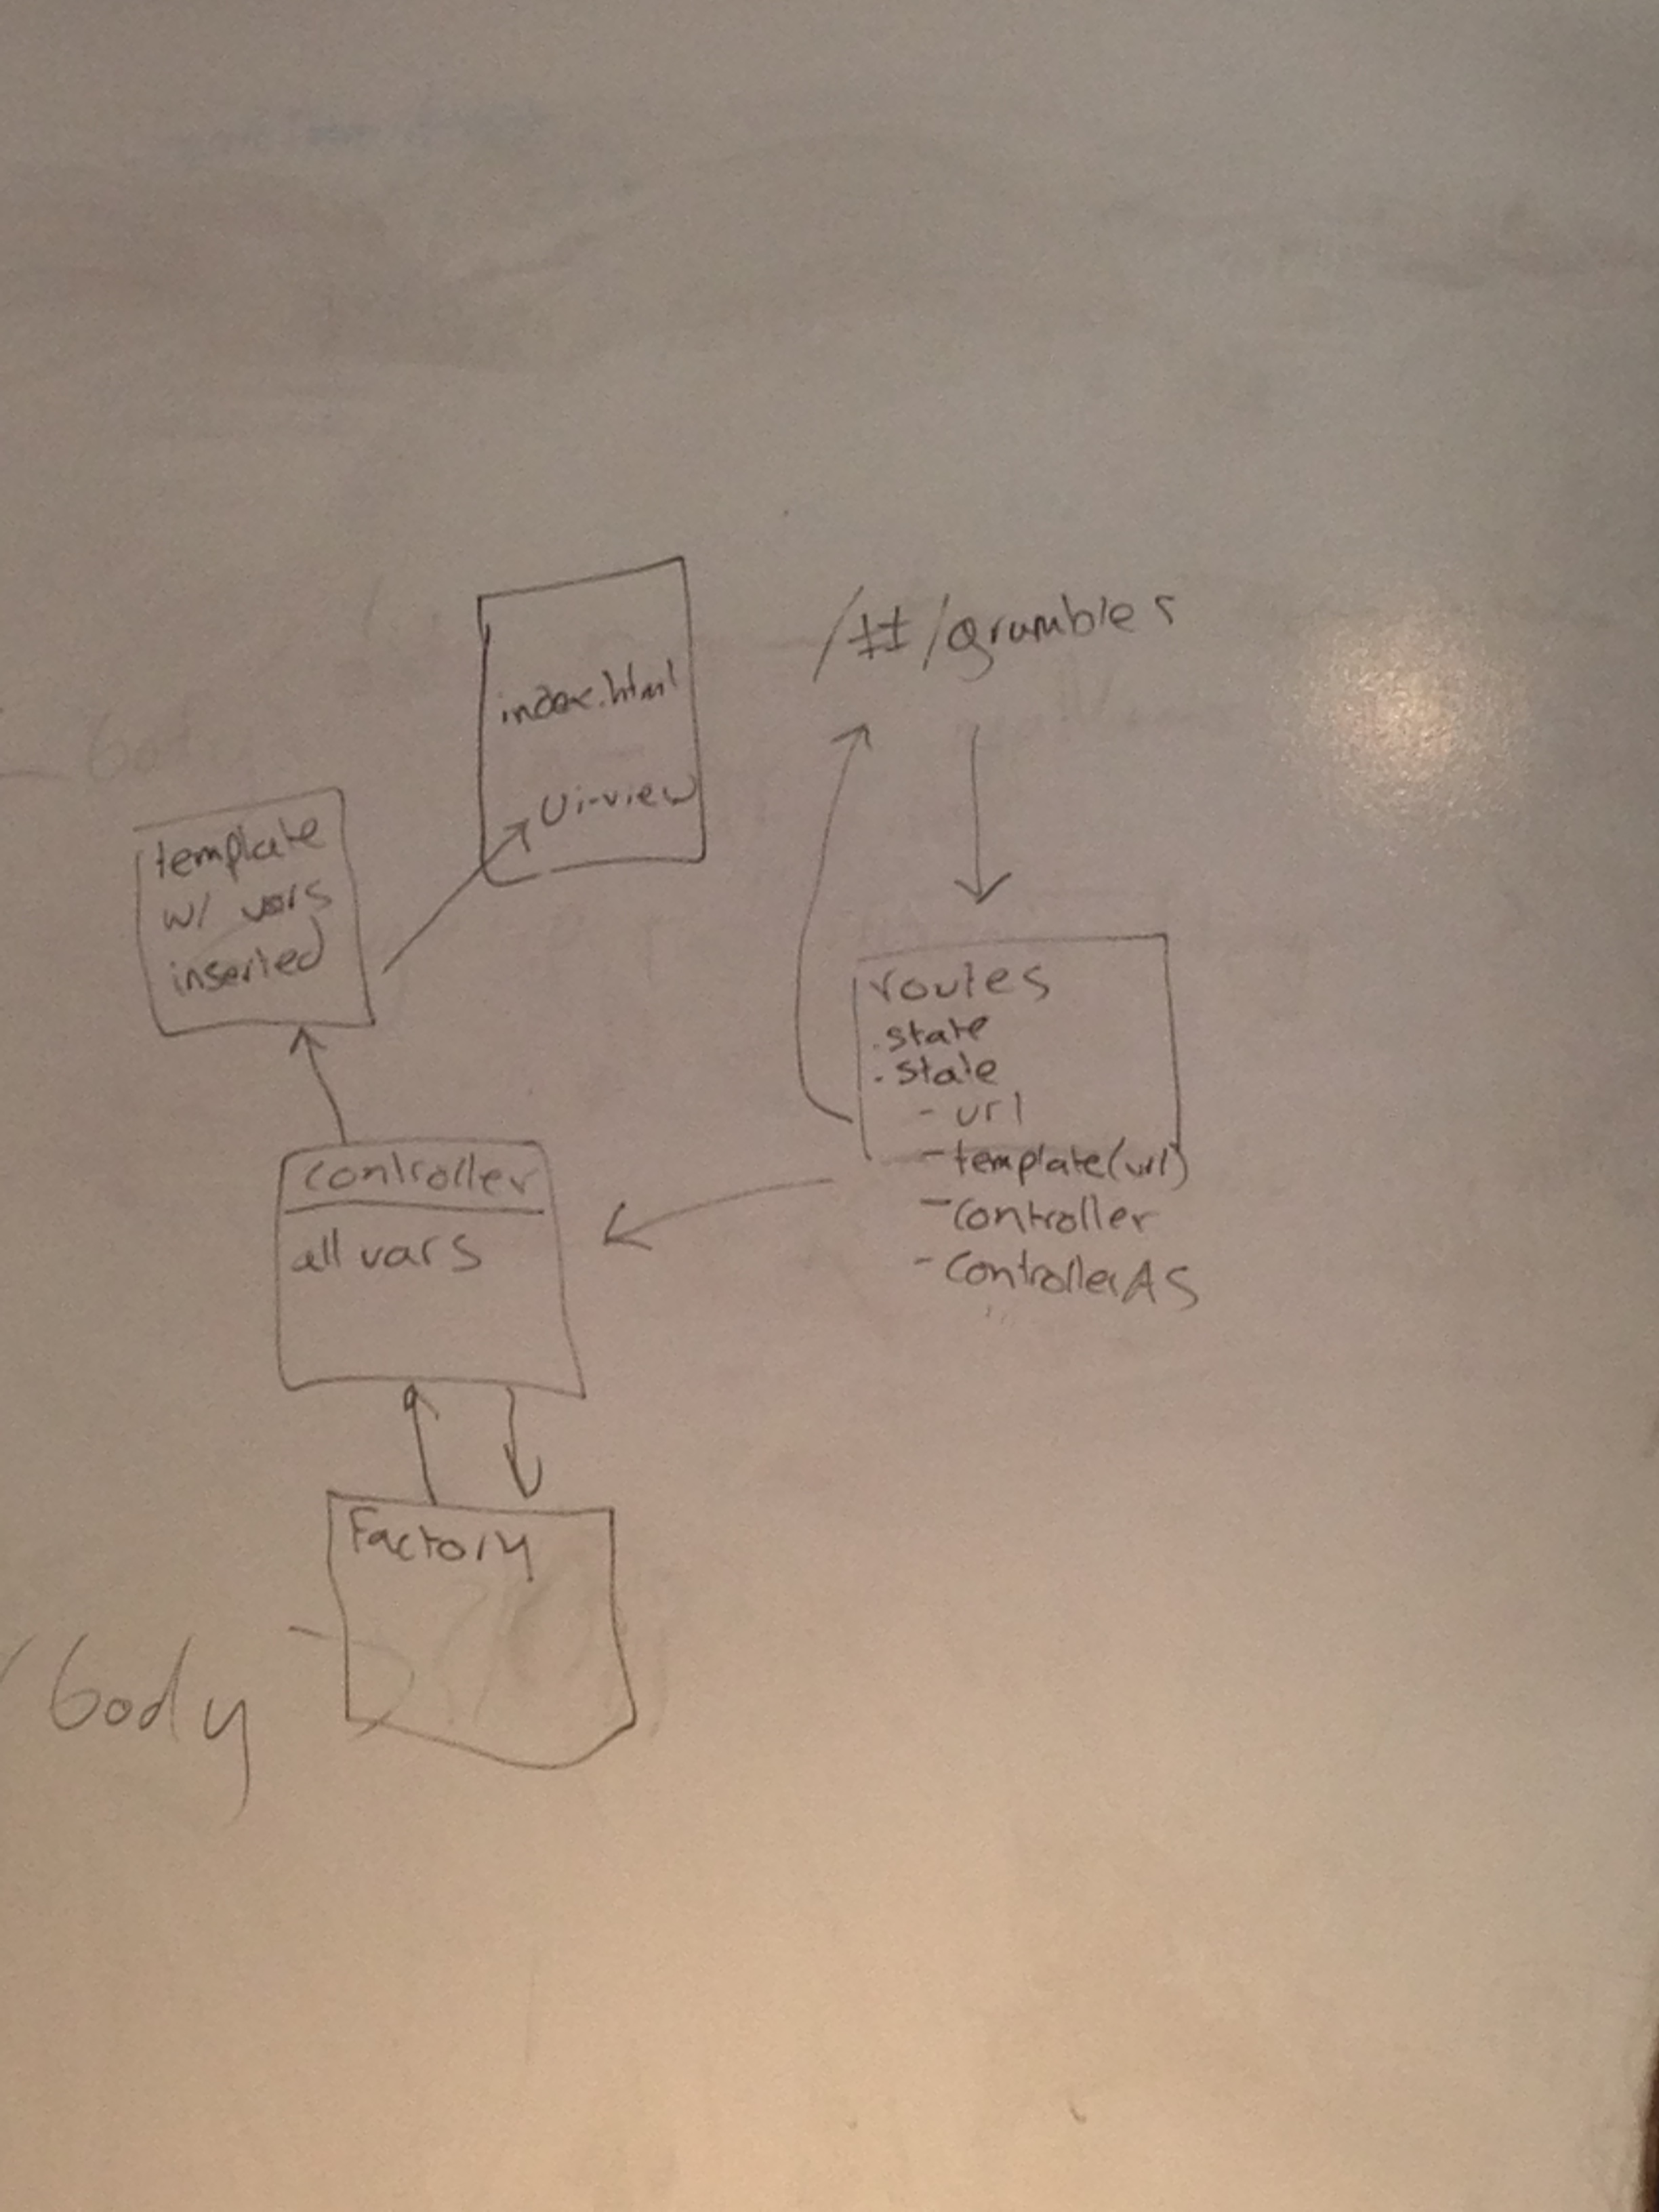 index.html
Ui-view
/#/grumbles
template
w/ vars
inserted
routes
.state
.state
- url
- template(url)
- controller
- controllerAS
controller
all vars
Factory
body